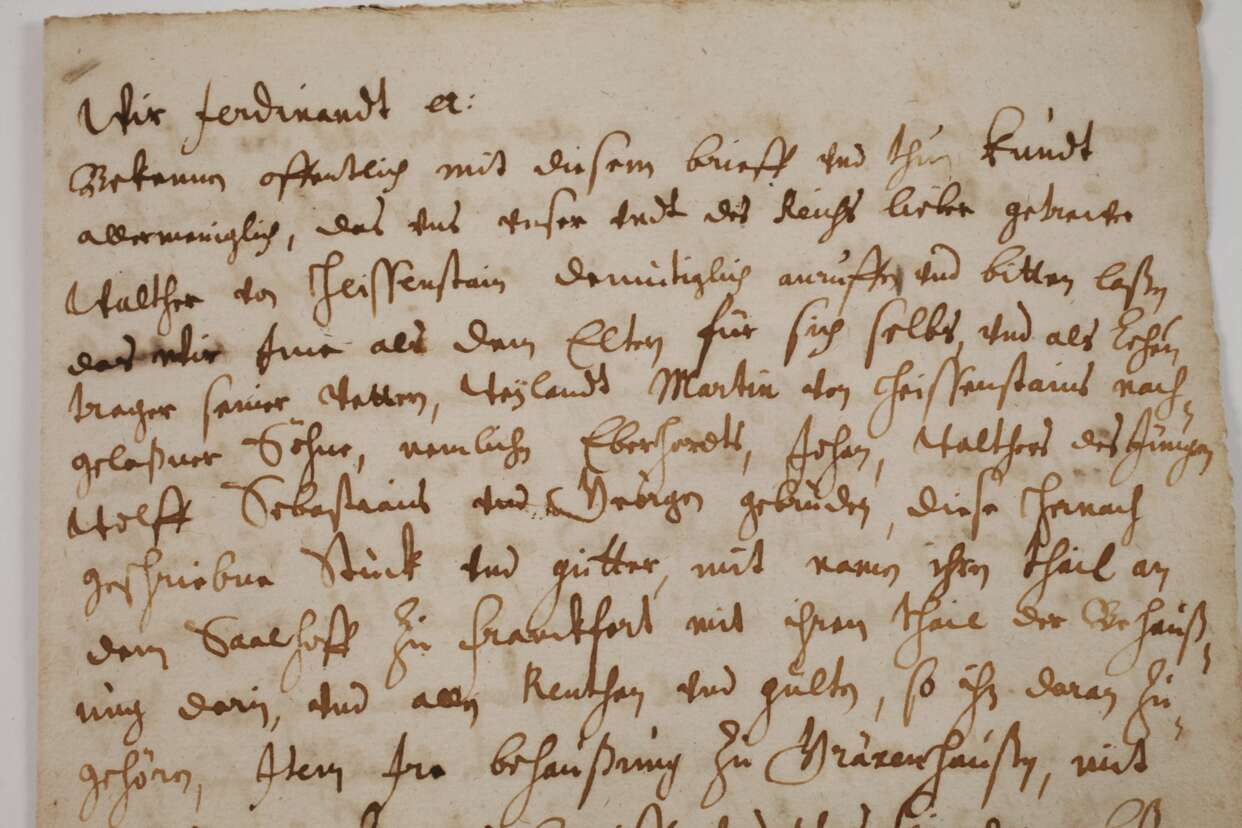 Wir Ferdinandt etc:
Bekennen offentlich mit diesem brieff vnd thun kundt
allermeniglich, das vns vnser vndt des Reichs lieber getrewer
Walther von Heissenstain demütiglich anruffen vnd bitten laßen
das wir Ime als dem Elten für sich selbs, vnd als Lehen
trager seiner Vettern, Weylandt Martin von Heissenstains nach-
gelaßner Söhne, nemlichen Eberhardts, Johan, Walthers des Jüngen
Wolff Sebastians vnd Geörgen gebrüder, diese hernach
geschriebne Stück vnd gütter, mit namen ihren thail an
dem Saalhoff zu Franckfort mit ihren thail der Behauß-
ung darin, vnd allen Renthen vnd gülten, so ihn daran zu-
gehören, Item Ire behaußung zu Gräuenhaußen, mit